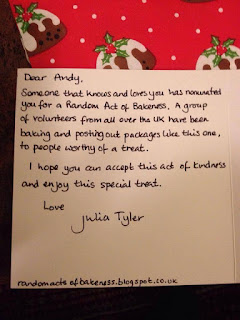 Dear Andy,
Someone that knows and loves you has nominated
you for a Random Act of Bakeness. A group
of volunteers from all over the UK have been
baking and posting out packages like this one,
to people worthy of a treat.
I hope you can accept this act of kindness
and enjoy this special treat.
Love
Julia Tyler
randomactsofbakeness.blogspot.co.uk